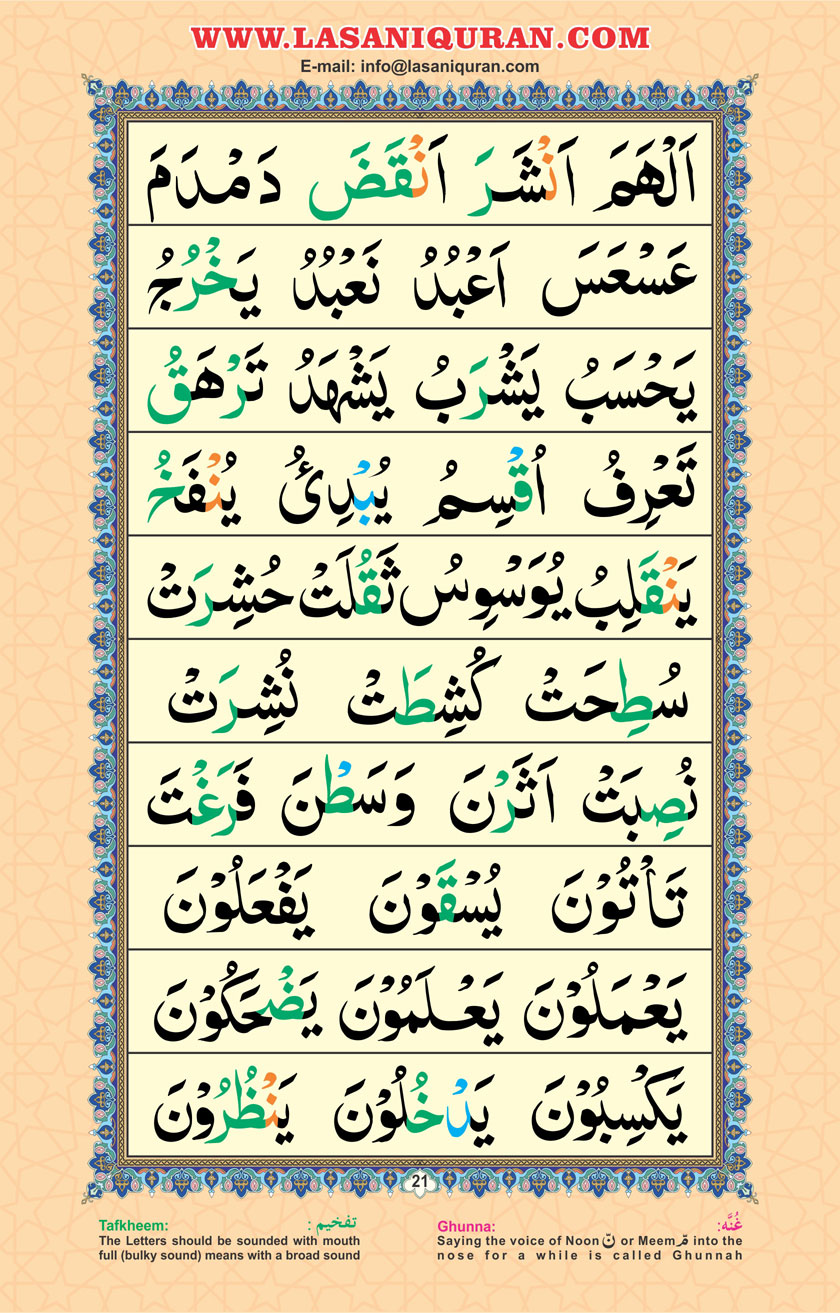 WWW.LASANIQURAN.COM
E-mail: info@lasaniquran.com
اَلْهَمَ اَنْشَرَ اَنْقَضَ دَمْدَمَ
عَسْعَسَ اَعْبُدُ نَعْبُدُ يَخْرُجُ
يَحْسَبُ يَشْرَبُ يَشْهَدُ تَرْهَقُ
تَعْرِفُ اُقْسِمُ يُبْدِئُ يُنْفَخُ
يَنْقَلِبُ يُوَسْوِسُ ثَقُلَتْ حُشِرَتْ
سُطِحَتْ كُشِطَتْ نُشِرَتْ
نُصِبَتْ اَثَرْنَ وَسَطْنَ فَرَغْتَ
تَأْتُوْنَ يُسْقَوْنَ يَفْعَلُوْنَ
يَعْمَلُوْنَ يَعْلَمُوْنَ يَضْحَكُوْنَ
يَكْسِبُوْنَ يَدْخُلُوْنَ يَنْظُرُوْنَ
21
Tafkheem: تفخیم :
The Letters should be sounded with mouth
full (bulky sound) means with a broad sound
Ghunna: غُنَّه:
Saying the voice of Noon نّ or Meem مّ into the
nose for a while is called Ghunnah